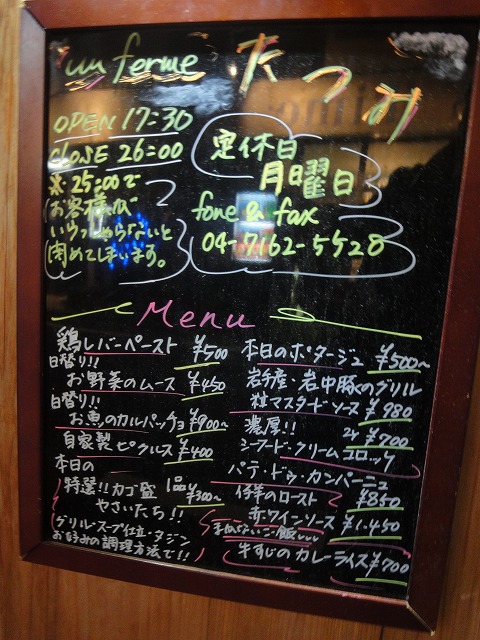 un ferme たつみ
OPEN 17:30
CLOSE 26:00
※25:00で
お客様が
いらっしゃらないと
閉めてしまいます。
定休日
月曜日
fone & fax
04-7162-5528
Menu
鶏レバーペースト ¥500
日替り!!
お野菜のムース ¥450
日替り!!
お魚のカルパッチョ ¥900~
自家製ピクルス ¥400
本日の
特選!!カゴ盛 1品 ¥300~
やさいたち!!
グリル・スープ仕立・タジン
お好みの調理方法で!!
本日のポタージュ ¥500~
岩手産・岩中豚のグリル
粒マスタードソース ¥980
濃厚!! 2ヶ ¥700
シーフード・クリームコロッケ
パテ・ドゥ・カンパーニュ
¥850
仔羊のロースト
赤ワインソース ¥1.450
まかないご飯
牛すじのカレーライス ¥700